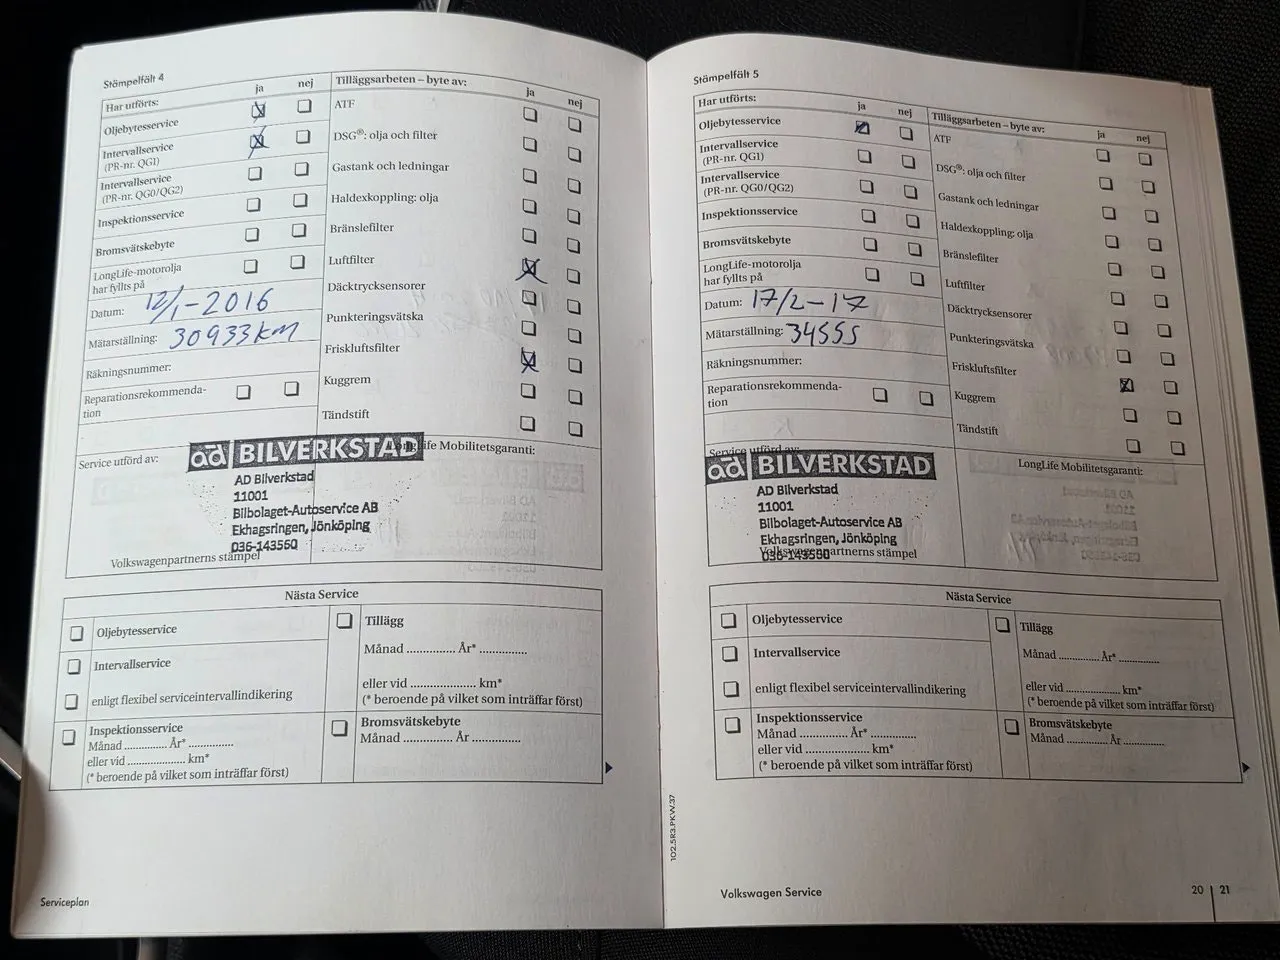 Stämpelfält 4
Har utförts:
ja
nej
Oljebytesservice
Intervallservice
(PR-nr. QG1)
Intervallservice
(PR-nr. QG0/QG2)
Inspektionsservice
Bromsvätskebyte
LongLife-motorolja
har fyllts på
Datum: 12/1-2016
Mätarställning: 30933 KM
Räkningsnummer:
Reparationsrekommenda-
tion
Tilläggsarbeten – byte av:
ja
nej
ATF
DSG®: olja och filter
Gastank och ledningar
Haldexkoppling: olja
Bränslefilter
Luftfilter
Däcktrycksensorer
Punkteringsvätska
Friskluftsfilter
Kuggrem
Tändstift
Service utförd av:
ad BILVERKSTAD
AD Bilverkstad
11001
Bilbolaget-Autoservice AB
Ekhagsringen, Jönköping
036-143560
Volkswagenpartnerns stämpel
LongLife Mobilitetsgaranti:
Nästa Service
Oljebytesservice
Intervallservice
enligt flexibel serviceintervallindikering
Inspektionsservice
Månad .............. År* ..............
eller vid ................... km*
(* beroende på vilket som inträffar först)
Tillägg
Månad .............. År* ..............
eller vid ..................... km*
(* beroende på vilket som inträffar först)
Bromsvätskebyte
Månad .............. År ..............
Serviceplan
Stämpelfält 5
Har utförts:
ja
nej
Oljebytesservice
Intervallservice
(PR-nr. QG1)
Intervallservice
(PR-nr. QG0/QG2)
Inspektionsservice
Bromsvätskebyte
LongLife-motorolja
har fyllts på
Datum: 17/2-17
Mätarställning: 34555
Räkningsnummer:
Reparationsrekommenda-
tion
Tilläggsarbeten – byte av:
ja
nej
ATF
DSG®: olja och filter
Gastank och ledningar
Haldexkoppling: olja
Bränslefilter
Luftfilter
Däcktrycksensorer
Punkteringsvätska
Friskluftsfilter
Kuggrem
Tändstift
Service utförd av:
ad BILVERKSTAD
AD Bilverkstad
11001
Bilbolaget-Autoservice AB
Ekhagsringen, Jönköping
036-143560
Volkswagenpartnerns stämpel
LongLife Mobilitetsgaranti:
Nästa Service
Oljebytesservice
Intervallservice
enligt flexibel serviceintervallindikering
Inspektionsservice
Månad .............. År* ..............
eller vid ................... km*
(* beroende på vilket som inträffar först)
Tillägg
Månad .............. År* ..............
eller vid ................... km*
(* beroende på vilket som inträffar först)
Bromsvätskebyte
Månad .............. År ..............
102.5R3.PKW.37
Volkswagen Service
20 | 21